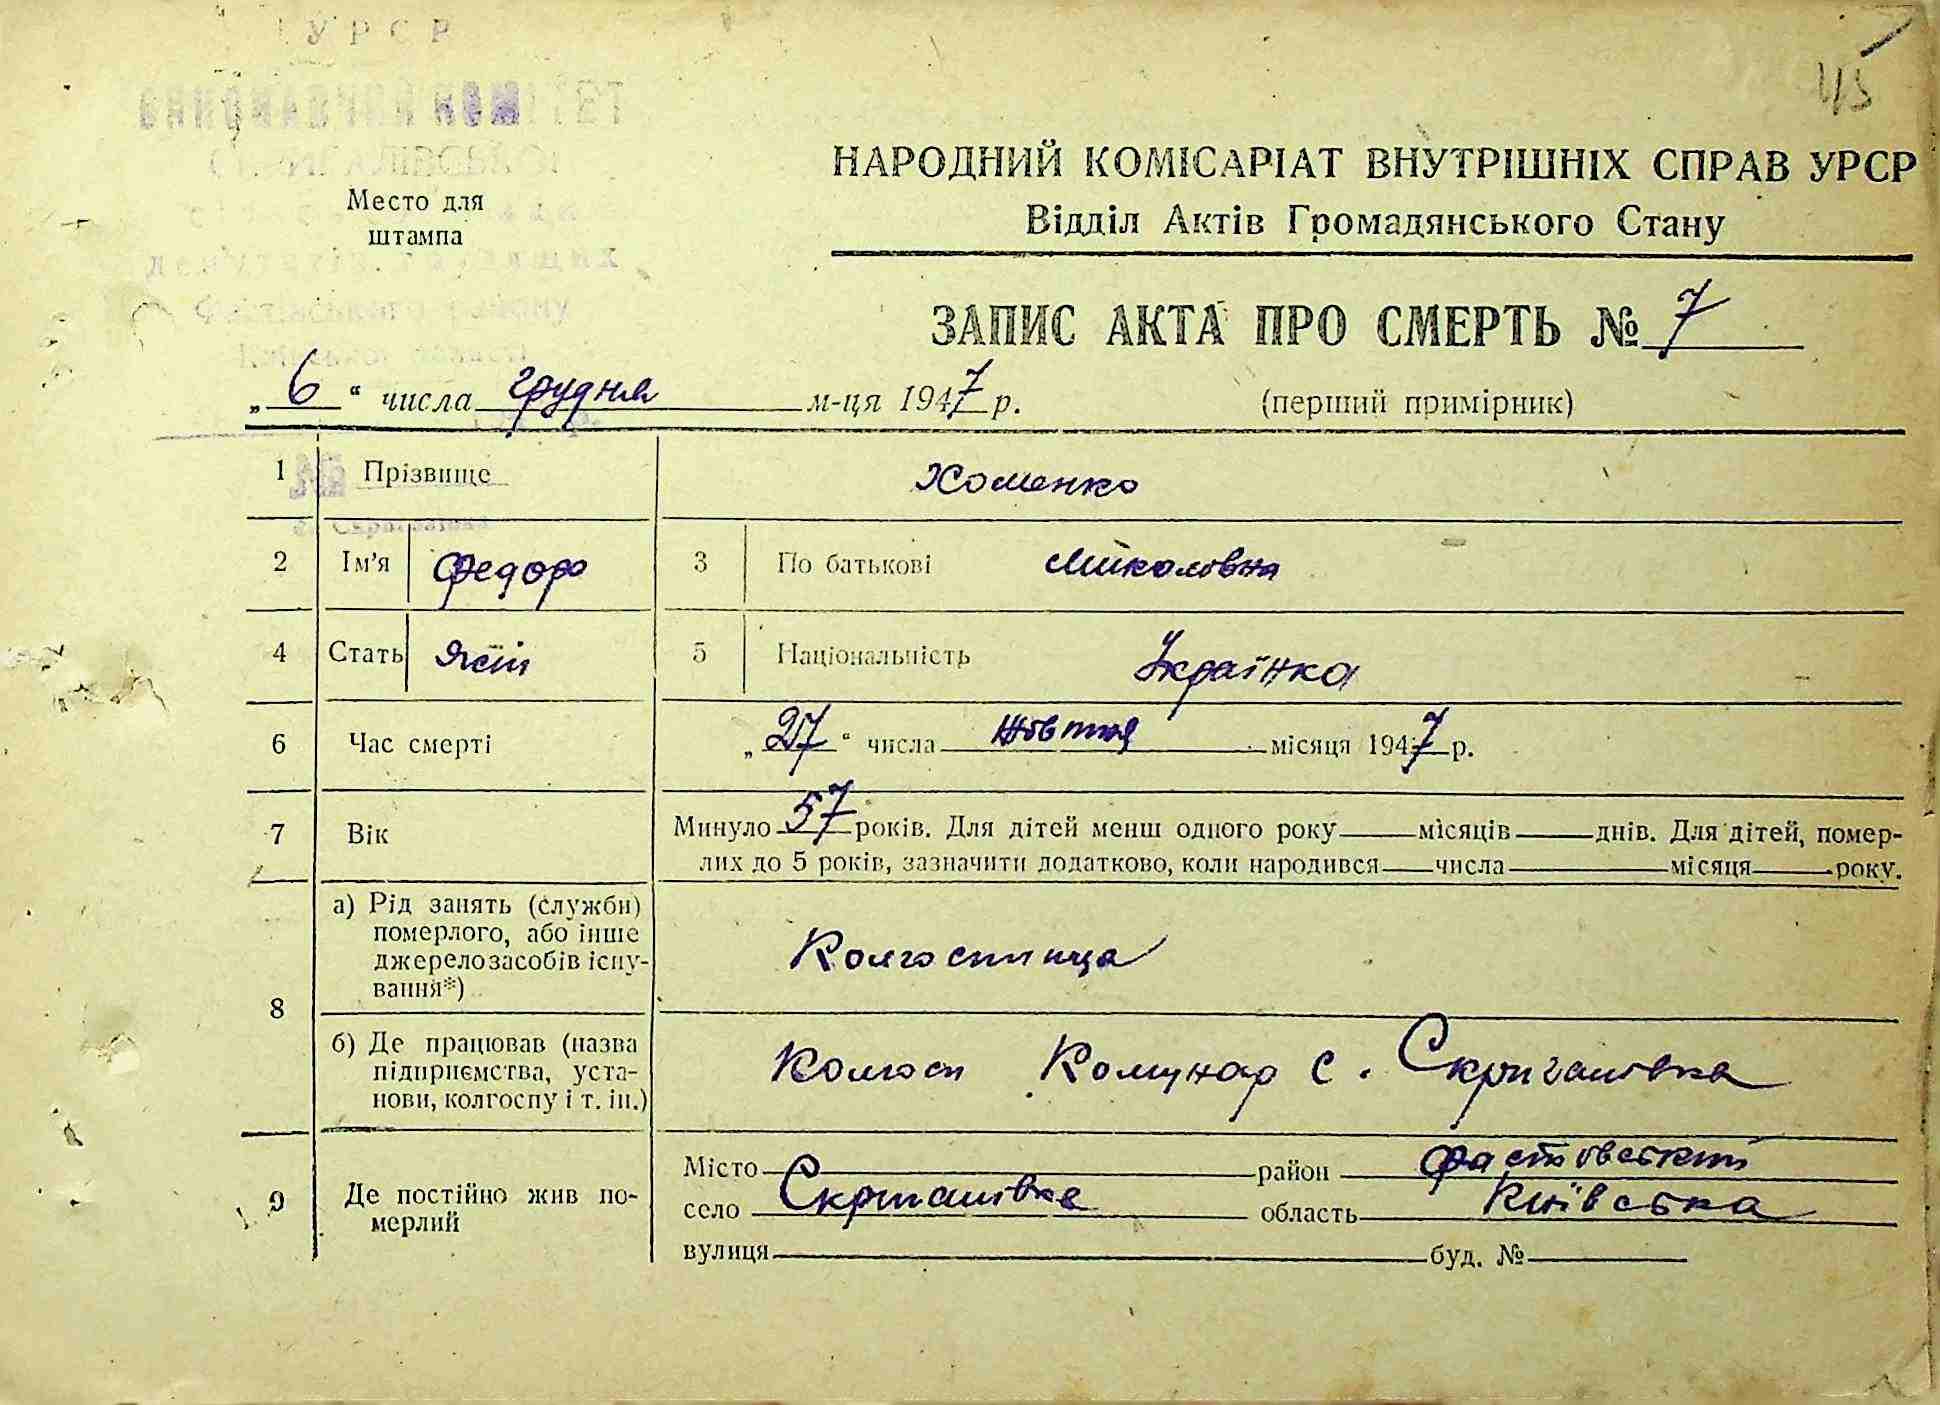 УРСР
ВИКОНАВЧИЙ КОМІТЕТ
депутатів трудящих
Фастівського району
Київської області
45
Место для
штампа
НАРОДНИЙ КОМІСАРІАТ ВНУТРІШНІХ СПРАВ УРСР
Відділ Актів Громадянського Стану
ЗАПИС АКТА ПРО СМЕРТЬ № 7
„6“ числа грудня м-ця 1947 р. (перший примірник)
1 Прізвище Хоменко
2 Ім'я Федора 3 По батькові Миколовна
4 Стать жін 5 Національність Українка
6 Час смерті „27“ числа жовтня місяця 1947 р.
7 Вік Минуло 57 років. Для дітей менш одного року місяців днів. Для дітей, помер-
лих до 5 років, зазначити додатково, коли народився числа місяця року.
8 а) Рід занять (служби)
померлого, або інше
джерело засобів існу-
вання*)
Колгоспница
б) Де працював (назва
підприємства, уста-
нови, колгоспу і т. ін.)
Колгосп Комунар с. Скригалівка
9 Де постійно жив по-
мерлий
Місто район Фастовский
село Скригалівка область Київська
вулиця буд. №